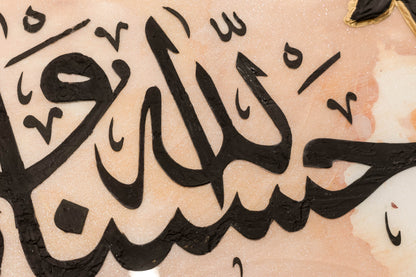 حسبنا الله و